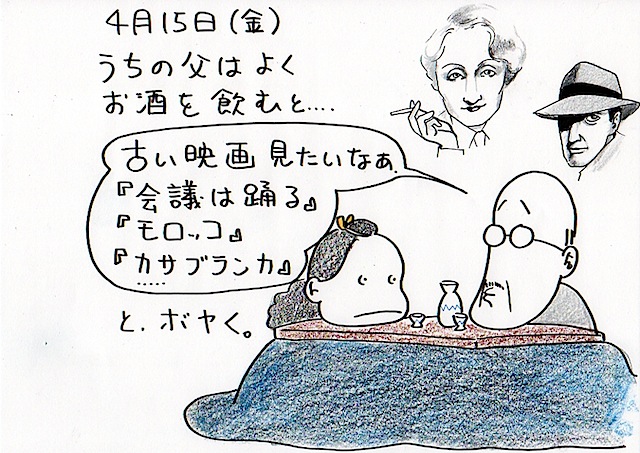 4月15日(金)
うちの父はよく
お酒を飲むと‥‥
古い映画見たいなぁ.
『会議は踊る』
『モロッコ』
『カサブランカ』
.....
と、ボヤく。